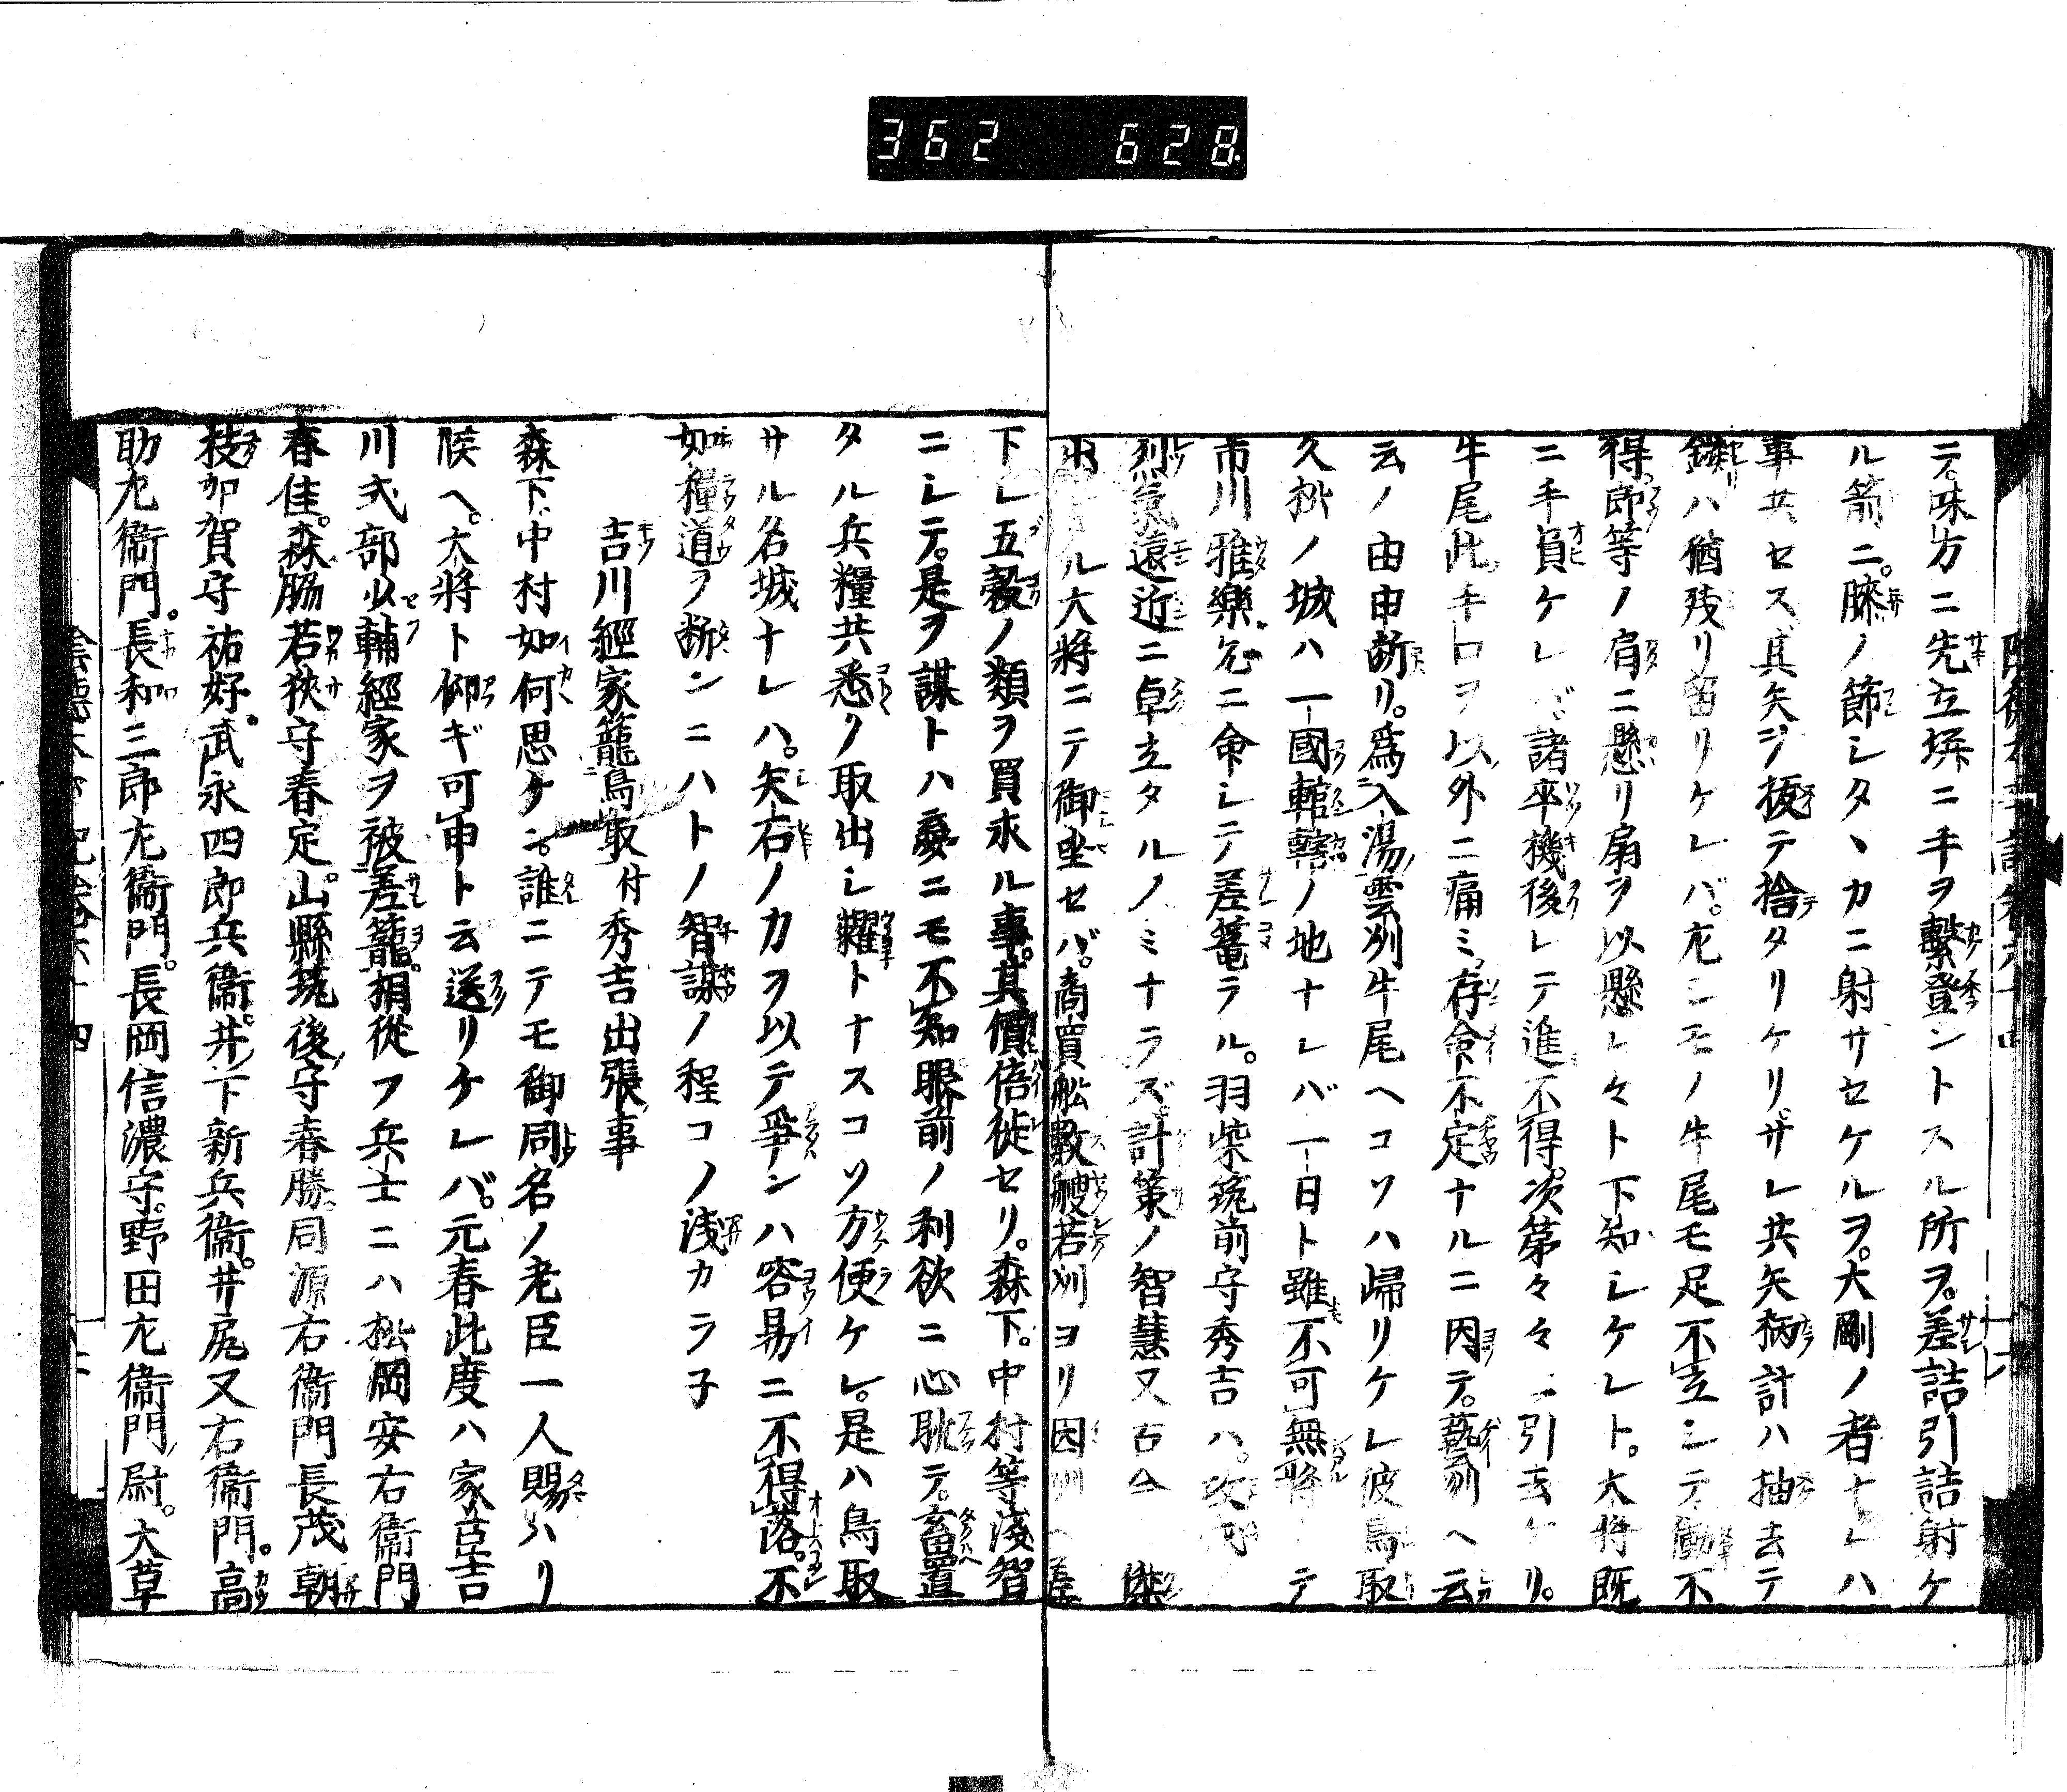 362 628
ニテ。味方ニ先立塀ニ手ヲ繫登ントスル所ヲ。差詰引詰射ケ
ル箭ニ。膝ノ節シタヽカニ射サセケルヲ。大剛ノ者ナレハ
事共セス、其矢ヲ抜テ捨タリケリ。サレ共矢柄計ハ抽去テ
鏃ハ猶残リ留リケレバ。左シモノ牛尾モ足不立シテ働不
得。郎等ノ肩ニ懸リ扇ヲ以懸レ々ト下知シケレト。大将既
ニ手負ケレバ諸卒機後レテ進不得。次第々々ニ引去ケリ。
牛尾此手口ヲ以外ニ痛ミ、存命不定ナルニ因テ。藝州ヘ云
云ノ由申断リ。為入湯雲州牛尾ヘコソハ帰リケレ彼鳥取
久松ノ城ハ一國轄ノ地ナレバ一日ト雖不可無将 テ
市川雅樂允ニ命シテ差篭ラル。羽柴筑前守秀吉ハ。
烈遠近ニ卓立タルノミナラズ。計策ノ智慧又古今
ル大将ニテ御坐セバ。商買舩数艘若州ヨリ因州ヘ差
下シ五穀ノ類ヲ買求ル事。其價倍蓰セリ。森下。中村等淺智
ニシテ。是ヲ謀トハ夢ニモ不知眼前ノ利欲ニ心耽テ。畜置
タル兵糧共悉ク取出シ糶トナスコソ方便ケレ。是ハ鳥取
サル名城ナレハ。矢石ノ力ヲ以テ爭ンハ容易ニ不得落。不
如糧道ヲ断ンニハトノ智謀ノ程コノ淺カラ子
吉川經家籠鳥取付秀吉出張事
森下。中村如何思ケン。誰ニテモ御同名ノ老臣一人賜ハリ
候ヘ。大将ト仰ギ可申ト云送リケレバ。元春此度ハ家臣吉
川式部少輔經家ヲ被差籠。相從フ兵士ニハ松岡安右衞門
春佳。森脇若狹守春定。山縣筑後守春勝。同源右衞門長茂。朝
枝加賀守祐好。武永四郎兵衞。井下新兵衞。井尻又右衞門。高
助左衞門。長和三郎左衞門。長岡信濃守。野田左衞門尉。大草